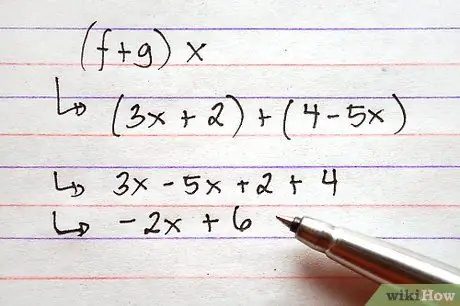 (f+g) x
↳ (3x + 2) + (4 - 5x)
↳ 3x - 5x + 2 + 4
↳ - 2x + 6
wikiHow